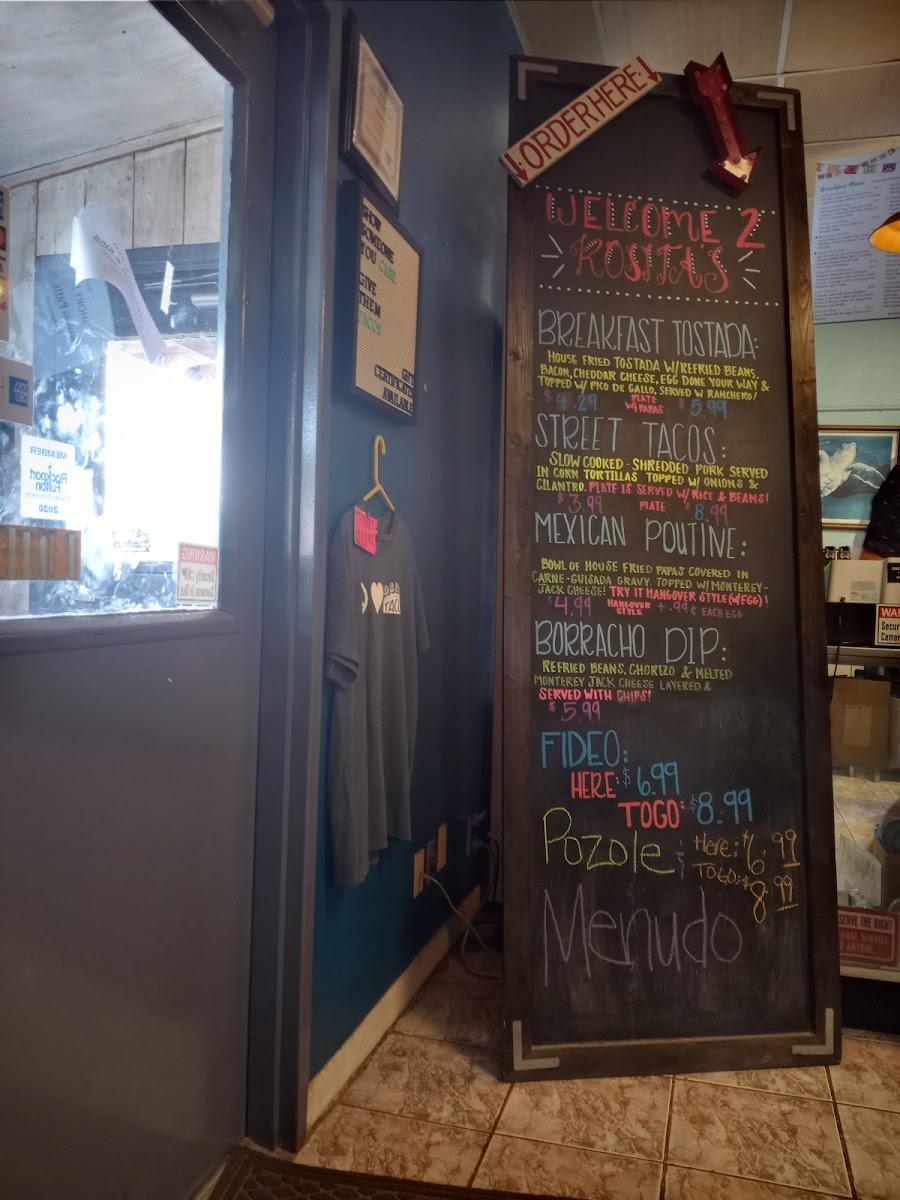 ORDER HERE
WELCOME 2
ROSITA'S
BREAKFAST TOSTADA:
HOUSE FRIED TOSTADA W/REFRIED BEANS,
BACON, CHEDDAR CHEESE, EGG DONE YOUR WAY &
TOPPED W/ PICO DE GALLO, SERVED W RANCHERO!
$4.29 PLATE W/ PAPAS $5.99
STREET TACOS:
SLOW COOKED-SHREDDED PORK SERVED
IN CORN TORTILLAS TOPPED W/ ONIONS &
CILANTRO. PLATE IS SERVED W/ RICE & BEANS!
$3.99 PLATE $8.99
MEXICAN POUTINE:
BOWL OF HOUSE FRIED PAPAS COVERED IN
CARNE-GUISADA GRAVY. TOPPED W/MONTEREY-
JACK CHEESE! TRY IT HANGOVER STYLE (W/EGG)!
$4.99 HANGOVER STYLE + .99¢ EACH EGG
BORRACHO DIP:
REFRIED BEANS, CHORIZO & MELTED
MONTEREY JACK CHEESE LAYERED &
SERVED WITH CHIPS!
$5.99
FIDEO:
HERE: $6.99
TOGO: $8.99
Pozole: Here: $6.99
TOGO: $8.99
Menudo
SHOW
SOMEONE
YOU CARE
GIVE
THEM
TACOS
GIFT
CERTIFICATES
AVAILABLE
MEMBER
Rockport
Fulton
2020
WARNING
Breakfast Plates
SERVE THE RIGHT
REFUSE SERVICE
ANYONE